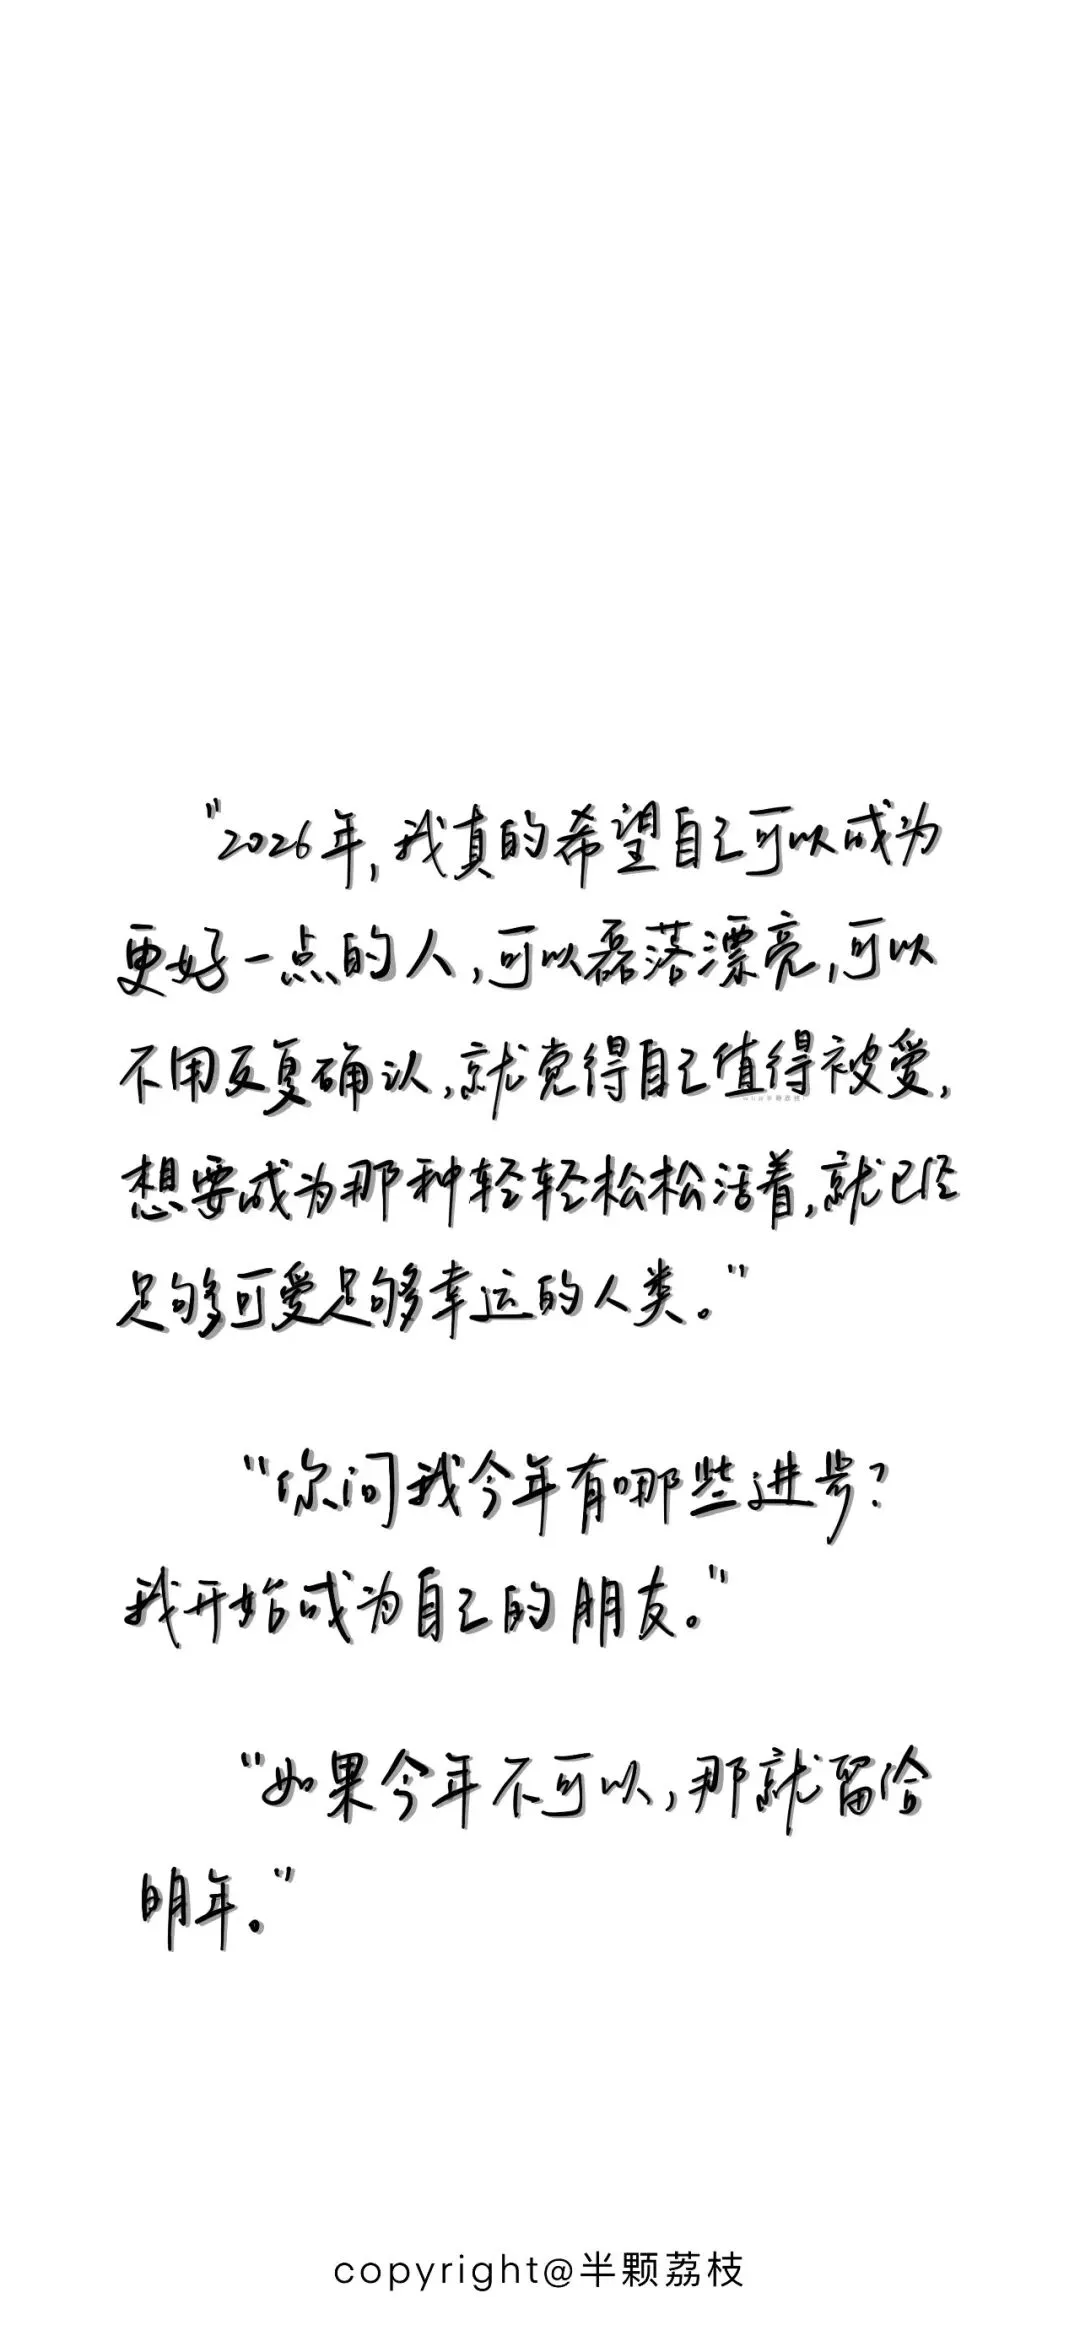 "2026年,我真的希望自己可以成为
更好一点的人,可以磊落漂亮,可以
不用反复确认,就觉得自己值得被爱,
想要成为那种轻轻松松活着,就已经
足够可爱足够幸运的人类。"
"你问我今年有哪些进步?
我开始成为自己的朋友。"
"如果今年不可以,那就留给
明年。"
copyright@半颗荔枝